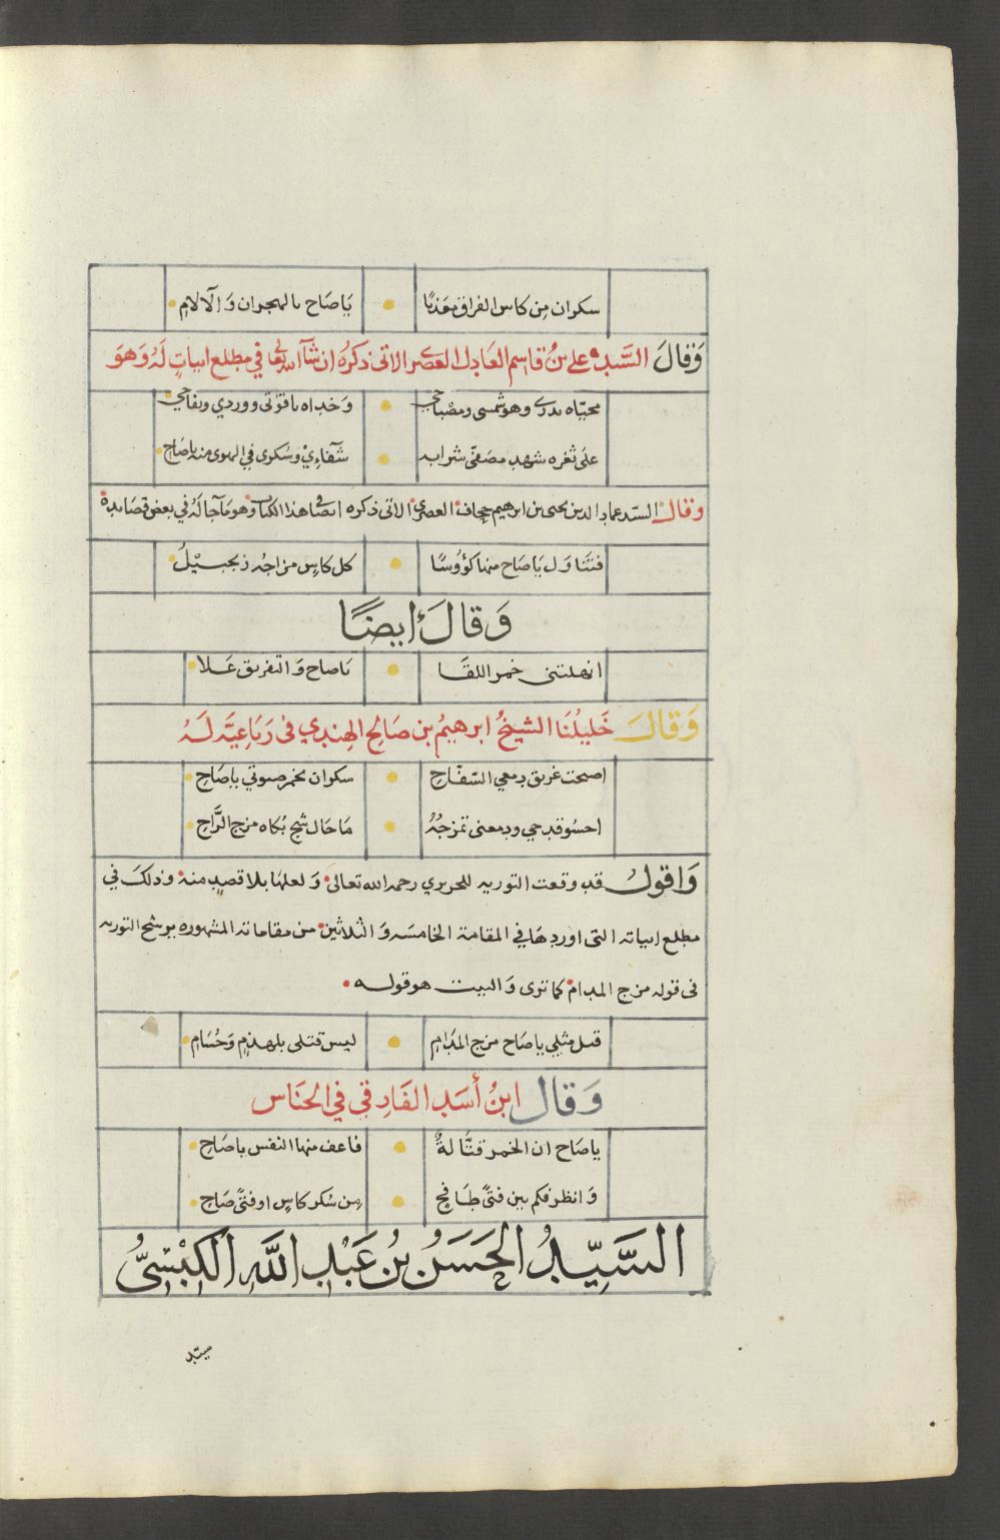 سكران من كاس الفراق معذبا • يا صاح بالهجران و الآلام •
وقال السيد علي بن قاسم العادل العصر الاتى ذكره ان شآ الله تعالى في مطلع ابيات له وهو
محيّاه بدري وهو شمسي ومصباحي • وخداه ياقوتي ووردي وتفاحي •
على ثغره شهد مصفّى شرابه • شفاءِيْ وسكرى في الهوى منه يا صاح •
وقال السيد عماد الدين يحيى بن ابرهيم جحاف العصري الاتى ذكره ايضًا في هذا الكتاب وهو مآ جا له في بعض قصايده
فتناول يا صاح منها كؤوسًا • كل كاس مزاجُه زنجبيلُ •
وَ قالَ ايضًا
انهلتنى خمر اللقا • يا صاح وَ التفريق علا •
وَقَالَ خَليلُنَا الشيخُ ابرهيمُ بن صَالِح الهندِي فى رَبَاعِيَّه لَهُ
اصبحت غريق دمعي السّفّاحِ • سكران بخمر صبوتي يا صَاحِ •
احسو قدحي وبدمعى تمزجهُ • مَا حَال شجٍ بُكاه مزج الرَّاحِ •
وَاقولُ قد وقعت التوريه للحريري رحمه الله تعالىٰ • وَ لعلها بلا قصدٍ منه • وذلكَ في
مطلع ابياته التى اوردهَا في المقامة الخامسَه وَ الثلاثين • من مقاماته المشهوره يرشح التوريه
فى قوله مزج المدام • كما ترى وَ البيت هو قوله •
قتل مثلي يا صَاح مزج المدَامِ • ليس قتلى بلهذمٍ وَحُسَامِ •
وَقال ابنُ أسَدِ الفَارِقِي في الجنَاس
يا صَاح ان الخمر قتَّالةٌ • فاعف منها النفس يا صَاحِ •
وَ انظر فكم بين فتًى طَافحٍ • من سُكر كاسٍ او فتًى صَاحِ •
السَّيِّدُ الحَسَنُ بْنُ عَبْدِ اللّٰهِ الْكِبْسِيُّ
سيّد